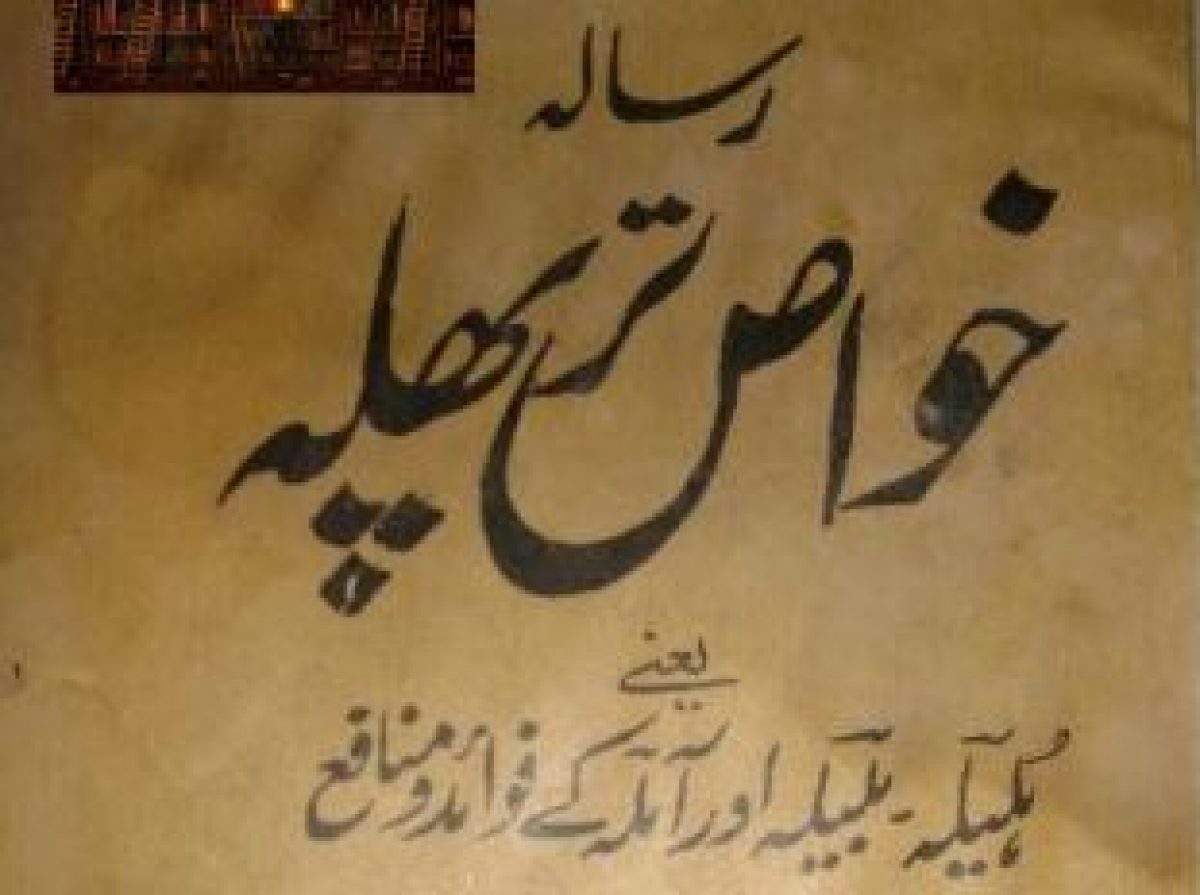 رسالہ
خواص ترپھلہ
یعنے
ہلیلہ - بلیلہ اور آملہ کے فوائد و منافع